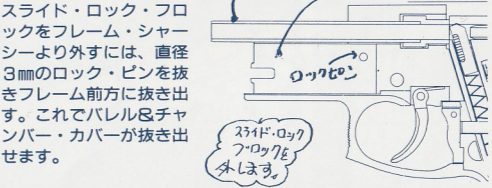 スライド・ロック・フロ
ックをフレーム・シャー
シーより外すには、直径
3㎜のロック・ピンを抜
きフレーム前方に抜き出
す。これでバレル&チャ
ンバー・カバーが抜き出
せます。
ロックピン
スライド・ロック
ブロックを
外します。